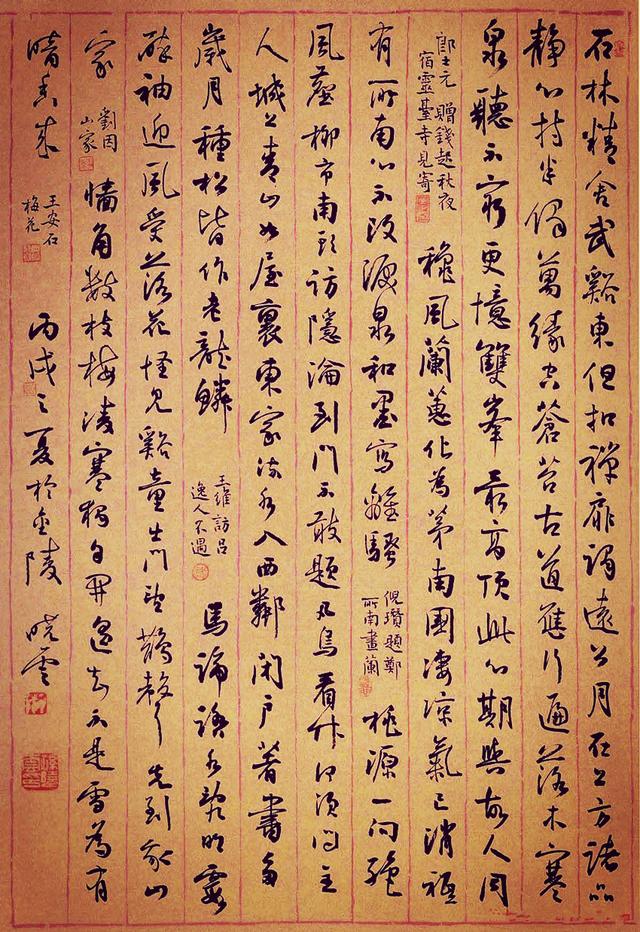 石林精舍武谿東但扣禪扉謁遠公月在上方諸品
靜心持半偈萬緣空蒼苔古道應行遍落木寒
泉聽不窮更憶雙峯最高頂此心期與故人同
郎士元 贈錢起秋夜
宿靈臺寺見寄
穐風蘭蕙化為茅南國凄涼氣已消祗
有所南心不改淚泉和墨寫離騷
倪瓚題鄭
所南畫蘭
桃源一向絕
風塵柳市南頭訪隱淪到門不敢題凡鳥看竹何須問主
人城上青山如屋裏東家流水入西鄰閉戶著書多
歲月種松皆作老龍鱗
王維訪呂
逸人不遇
馬蹄踏水亂明霞
醉袖迎風受落花怪見谿童出門望鵲聲先到我山
家
劉因
山家
墻角數枝梅凌寒獨自開遙知不是雪為有
暗香來
王安石
梅花
丙戌之夏於金陵 曉雲